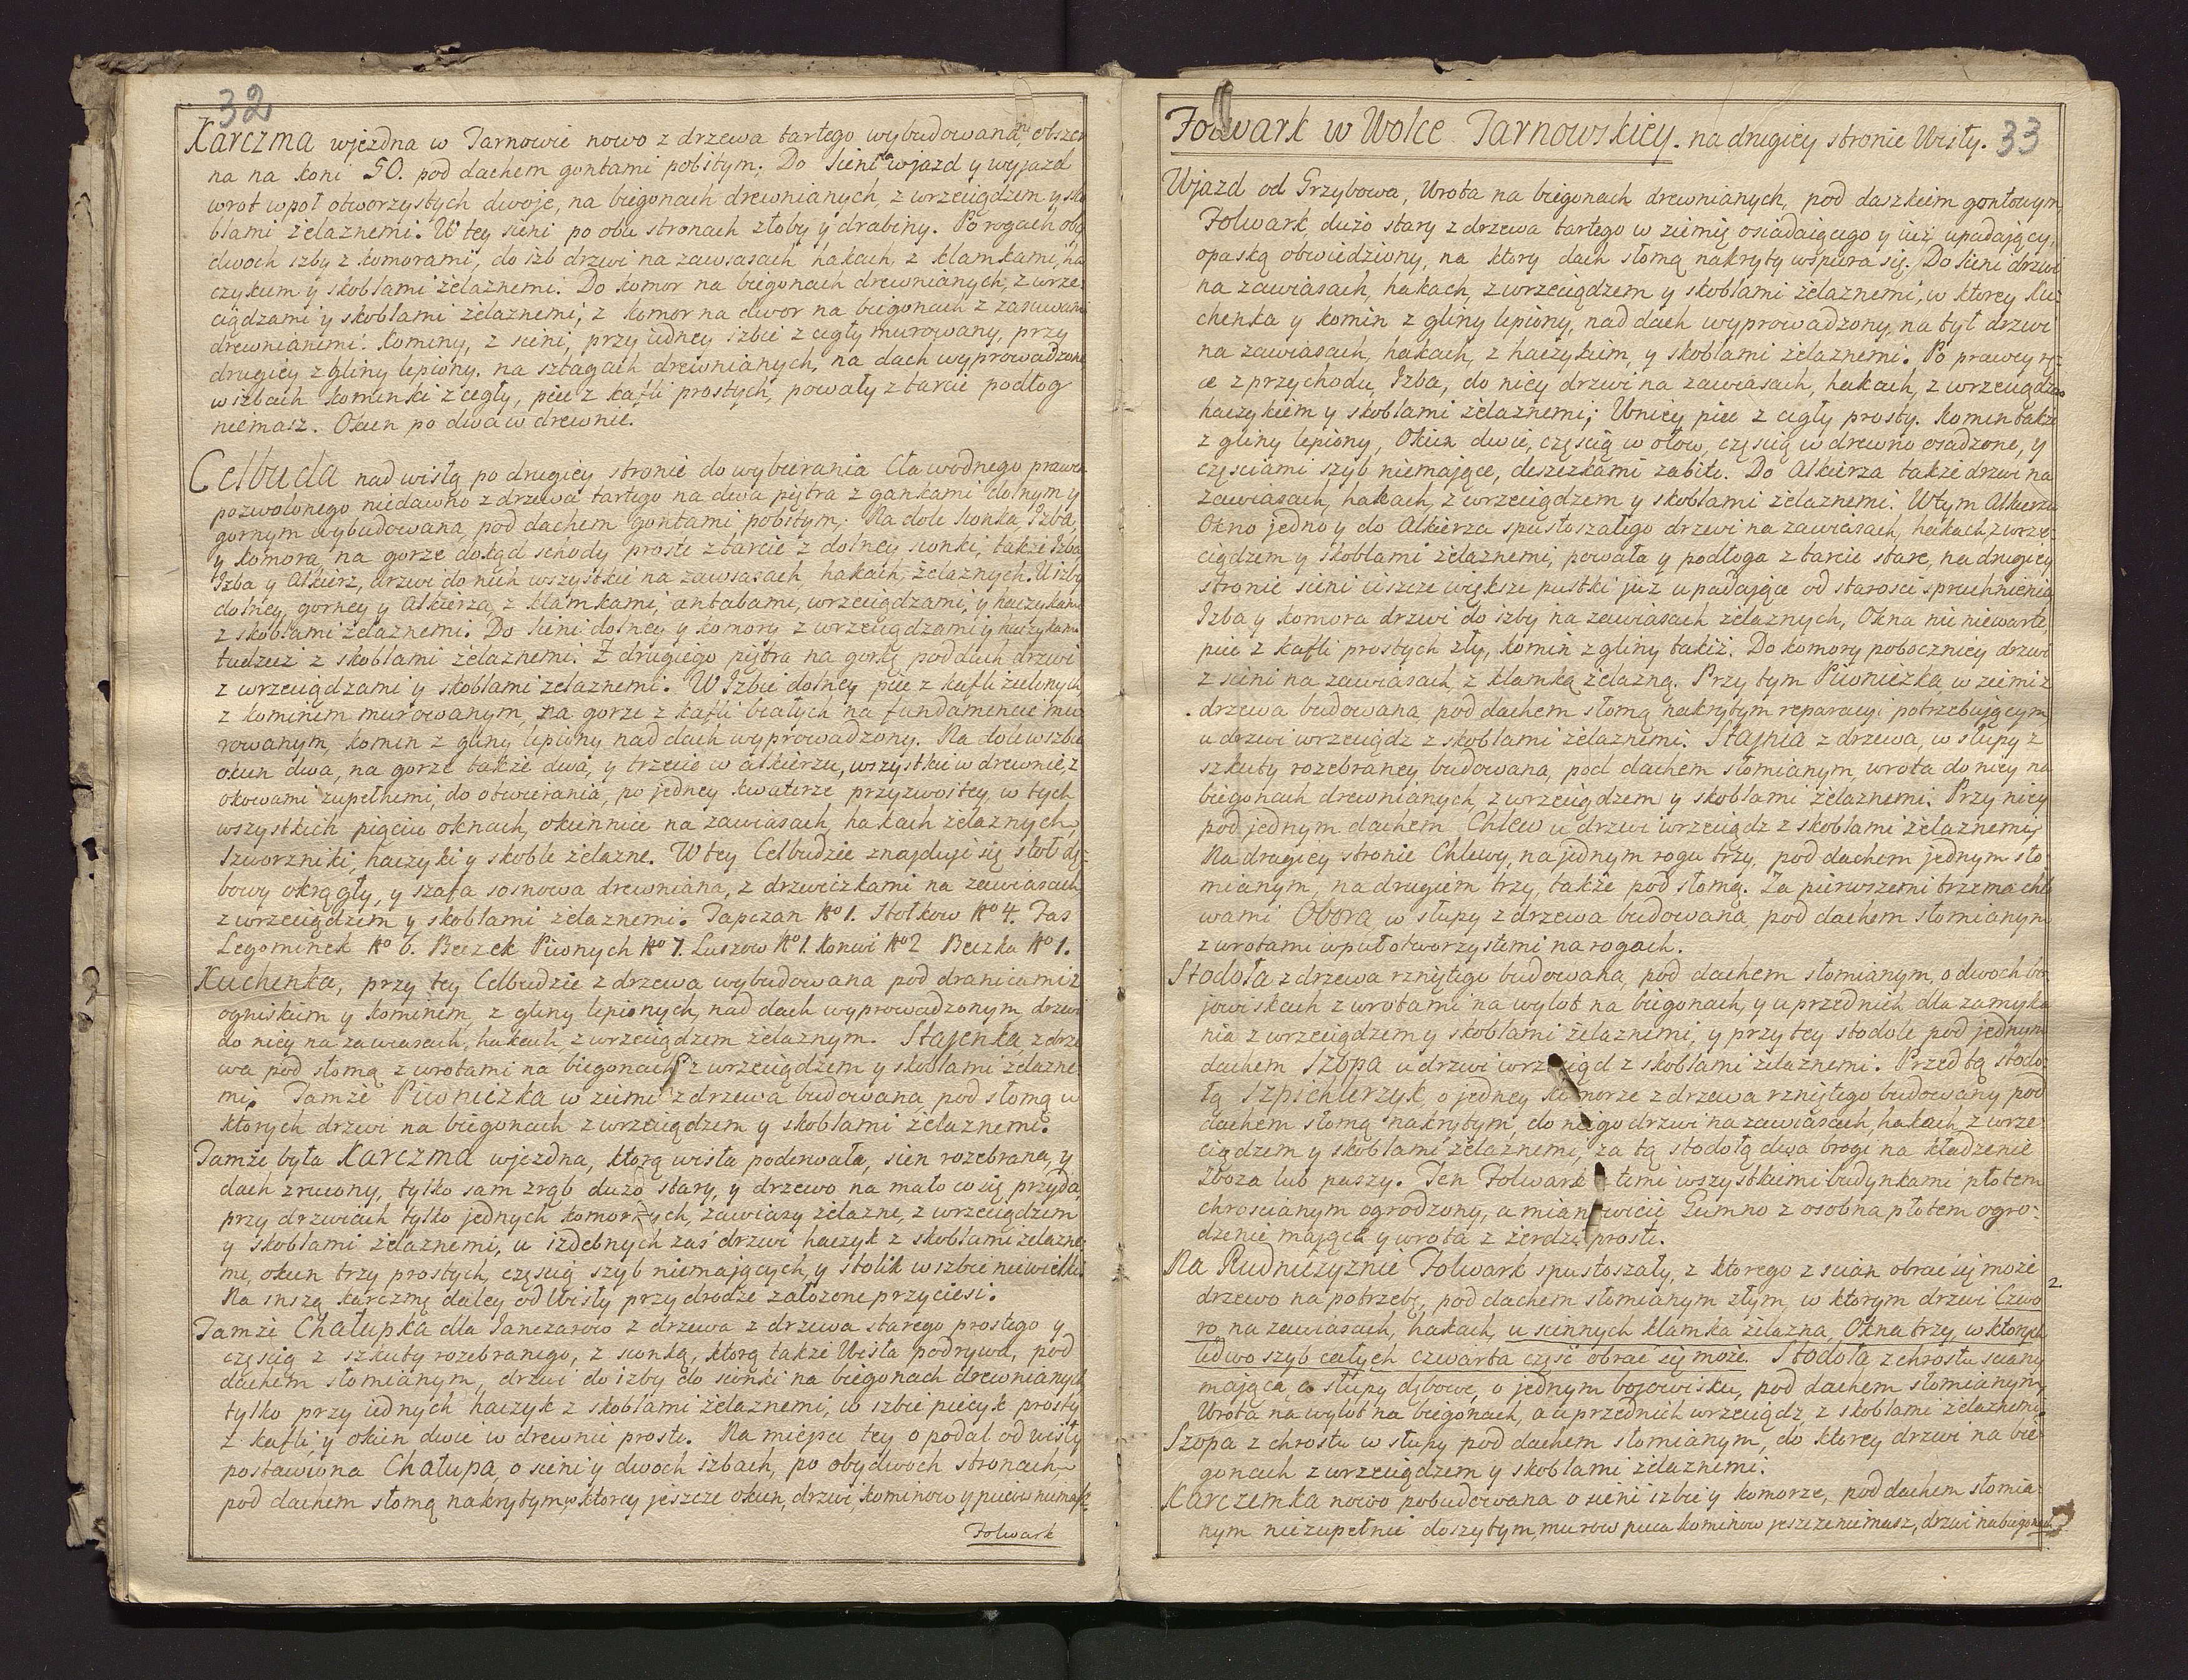 32
Karczma wjezdna w Tarnowie nowo z drzewa tartego wybudowana, obszer
na na koni 50. pod dachem gontami pobitym; Do Sieni wjazd y wyjazd
wrot wpoł otworzystych dwoje, na biegonach drewnianych, z wrzeciądzem y sko
blami żelaznemi. W tey sieni po obu stronach złoby y drabiny. Po rogach oby
dwoch izby z komorami, do izb drzwi na zawiasach hakach, z klamkami, ha
czykiem y skoblami żelaznemi. Do komor na biegonach drewnianych, z wrze
ciądzami y skoblami żelaznemi, z komor na dwor na biegonach z zasuwami
drewnianemi. Kominy, z sieni, przy iedney izbie z cegły murowany, przy
drugiey z gliny lepiony. na sztagach drewnianych, na dach wyprowadzone
w izbach kominki z cegły, piec z kafli prostych, powały z tarcic podłog
niemasz. Okien po dwa w drewnie.
Celbuda nad wisłą po drugiey stronie do wybierania Cła wodnego prawem
pozwolonego niedawno z drzewa tartego na dwa piętra z gankami dolnym y
gornym wybudowana pod dachem gontami pobitym. Na dole sionka, Izba,
y komora, na gorze dokąd schody proste z tarcic z dolney sionki, także Izba
Izba y Alkierz, drzwi do nich wszystkie na zawiasach, hakach, żelaznych. U izby
dolney, gorney y Alkierza, z klamkami, antabami, wrzeciądzami, y haczykami
z skoblami żelaznemi. Do Sieni dolney y komory z wrzeciądzami y haczykami
tudzież z skoblami żelaznemi. Z drugiego piętra na gorkę pod dach drzwi
z wrzeciądzami y skoblami żelaznemi. W Izbie dolney piec z kafli zielonych,
z kominem murowanym, na gorze z kafli białych na fundamencie mu
rowanym, komin z gliny lepiony nad dach wyprowadzony. Na dole w izbie
okien dwa, na gorze także dwa, y trzecie w alkierzu, wszystkie w drewnie, z
okowami zupełnemi, do otwierania, po jedney kwaterze przyzwoitey, w tych
wszystkich pięciu oknach, okiennice na zawiasach, hakach żelaznych,
Szworzniki, haczyki y skoble żelazne. W tey Celbudzie znajduje się stoł dę-
bowy okrągły, y szafa sosnowa drewniana, z drzwiczkami na zawiasach
z wrzeciądzem y skoblami żelaznemi. Tapczan No 1. Stołkow No 4. Fas
Legominek No 6. Beczek Piwnych No 7. Luszow No 1. Konwi No 2 Beczka No 1.
Kuchenka, przy tey Celbudzie z drzewa wybudowana pod dranicami z
ogniskiem y kominem, z gliny lepionych, nad dach wyprowadzonym, drzwi
do niey na zawiasach, hakach, z wrzeciądzem żelaznym. Stajenka z drze
wa pod słomą z wrotami na biegonach z wrzeciądzem y skoblami żelazne
mi. Tamże Piwniczka w ziemi z drzewa budowana, pod słomą u
ktorych drzwi na biegonach z wrzeciądzem y skoblami żelaznemi.
Tamże była Karczma wjezdna, ktorą wisła poderwała, sien rozebrana, y
dach zrucony, tylko sam zrąb dużo stary, y drzewo na mało co się przyda,
przy drzwiach tylko jednych komornych, zawiasy żelazne, z wrzeciądzem
y skoblami żelaznemi, u izdebnych zaś drzwi haczyk z skoblami żelazne
mi, okien trzy prostych, częścią szyb niemających, y stolik w izbie niewielki.
Na inszą karczmę daley od Wisły przy drodze założone przyciesi.
Tamże Chałupka dla Janczarow z drzewa z drzewa starego prostego y
częścią z szkuty rozebranego, z sionką, ktorą także Wisła podrywa, pod
dachem słomianym, drzwi do izby do sionki na biegonach drewnianych
tylko przy iednych haczyk z skoblami żelaznemi, w izbie piecyk prosty
z kafli, y okien dwie w drewnie proste. Na miejsce tey opodal od wisły
postawiona Chałupa, o sieni y dwoch izbach, po obydwoch stronach,
pod dachem słomą nakrytym, w ktorey jeszcze okien, drzwi, kominow y piecow niemasz.
Folwark
Folwark w Wolce Tarnowskiey. na drugiey stronie Wisły. 33
Wjazd od Grzybowa, Wrota na biegonach drewnianych, pod daszkiem gontowym,
Folwark, dużo stary z drzewa tartego w ziemię osiadaiącego y już upadający,
opaską obwiedziony, na ktory dach słomą nakryty wspiera się. Do sieni drzwi
na zawiasach, hakach, z wrzeciądzem y skoblami żelaznemi, w ktorey Ku-
chenka y komin z gliny lepiony, nad dach wyprowadzony, na tył drzwi
na zawiasach, hakach, z haczykiem y skoblami żelaznemi. Po prawey rę-
ce z przychodu, Izba, do niey drzwi na zawiasach, hakach, z wrzeciądzem
haczykiem y skoblami żelaznemi; Wniey piec z cegły prosty. Komin także
z gliny lepiony, Okien dwie, częścią w ołow, częścią w drewno osadzone, y
częściami szyb niemające, deszczkami zabite. Do Alkierza także drzwi na
zawiasach, hakach, z wrzeciądzem y skoblami żelaznemi. Wtym Alkierzu
Okno jedno y do Alkierza spustoszałego drzwi na zawiasach, hakach, z wrze-
ciądzem y skoblami żelaznemi, powała y podłoga z tarcic stare, na drugiey
stronie sieni ieszcze większe pustki już upadające od starości spruchnienia
Izba y komora drzwi do izby na zawiasach żelaznych, Okna nic niewarte,
piec z kafli prostych zły, komin z gliny takiż. Do komory poboczniey drzwi
z sieni na zawiasach, z klamką żelazną. Przy tym Piwniczka, w ziemi z
drzewa budowana, pod dachem słomą nakrytym reparacyi potrzebującym,
u drzwi wrzeciądz z skoblami żelaznemi. Stajnia z drzewa, w słupy z
szkuty rozebraney budowana, pod dachem słomianym, wrota do niey na
biegonach drewnianych, z wrzeciądzem y skoblami żelaznemi. Przy niey
pod jednym dachem Chlew u drzwi wrzeciądz z skoblami żelaznemi,
Na drugiey stronie Chlewy, na jednym rogu trzy, pod dachem jednym sło-
mianym, na drugiem trzy, także pod słomą. Za pierwszemi trzema chle
wami Obora w słupy z drzewa budowana, pod dachem słomianym
z wrotami wpuł otworzystemi na rogach.
Stodoła z drzewa rzniętego budowana, pod dachem słomianym, o dwoch bo
jowiskach z wrotami na wylot na biegonach, y u przednich, dla zamyka
nia z wrzeciądzem y skoblami żelaznemi, y przy tey stodole pod jednym
dachem Szopa u drzwi wrzeciądz z skoblami żelaznemi. Przed tą stodo-
łą Szpichlerzyk, o jedney komorze z drzewa rzniętego budowany pod
dachem słomą nakrytym, do niego drzwi na zawiasach, hakach, z wrze-
ciądzem y skoblami żelaznemi, za tą stodołą dwa brogi na kładzenie
Zboza lub paszy. Ten Folwark z temi wszystkiemi budynkami płotem
chrościanym ogrodzony, a mianowicie Gumno z osobna płotem ogro-
dzenie mające y wrota z żerdzi proste.
Na Rudniczyznie Folwark spustoszały, z ktorego z scian obrać się może
drzewo na potrzebę, pod dachem słomianym złym, w ktorym drzwi Czwo 2.
ro na zawiasach, hakach, u siennych klamka żelazna, Okna trzy, w ktorych
udwo szyb całych czwarta część obrać się może. Stodoła z chrostu sciany
mająca, w słupy dębowe, o jednym bojowisku, pod dachem słomianym,
Wrota na wylot na biegonach, a u przednich wrzeciądz, z skoblami żelaznemi.
Szopa z chrostu w słupy pod dachem słomianym, do ktorey drzwi na bie-
gonach z wrzeciądzem y skoblami żelaznemi.
Karczemka nowo pobudowana o sieni izbie y komorze, pod dachem słomia-
nym niezupełnie doszytym, murow pieca kominow jeszcze niemasz, drzwi na biegonach